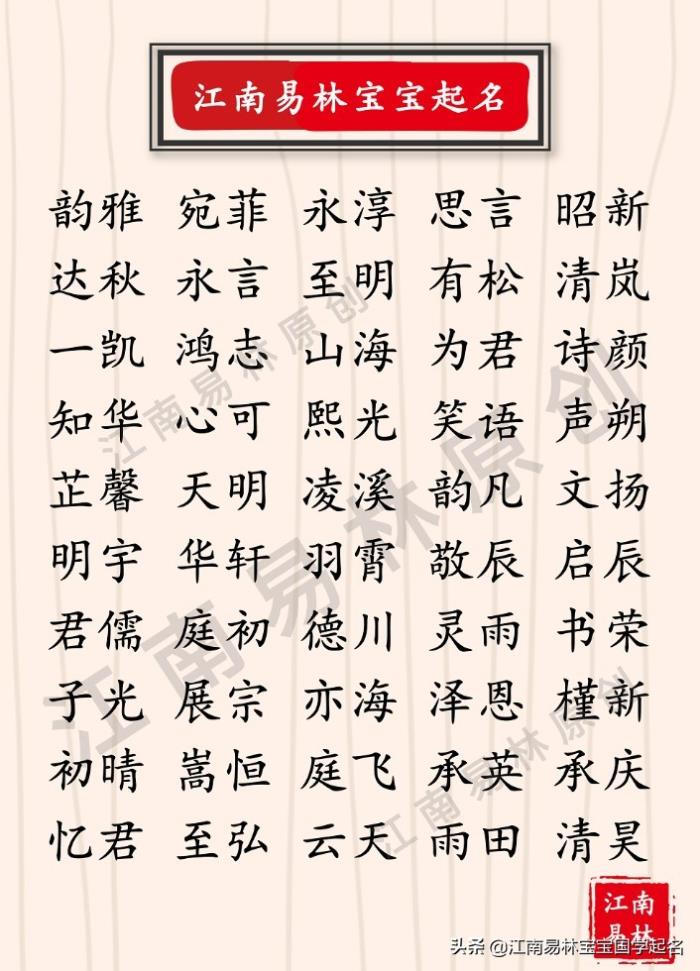 江南易林宝宝起名
韵雅 宛菲 永淳 思言 昭新
达秋 永言 至明 有松 清岚
一凯 鸿志 山海 为君 诗颜
知华 心可 熙光 笑语 声朔
芷馨 天明 凌溪 韵凡 文扬
明宇 华轩 羽霄 敬辰 启辰
君儒 庭初 德川 灵雨 书荣
子光 展宗 亦海 泽恩 槿新
初晴 嵩恒 庭飞 承英 承庆
忆君 至弘 云天 雨田 清昊
江南易林原创
江南易林原创
江南易林原创
江南
易林
头条 @江南易林宝宝国学起名